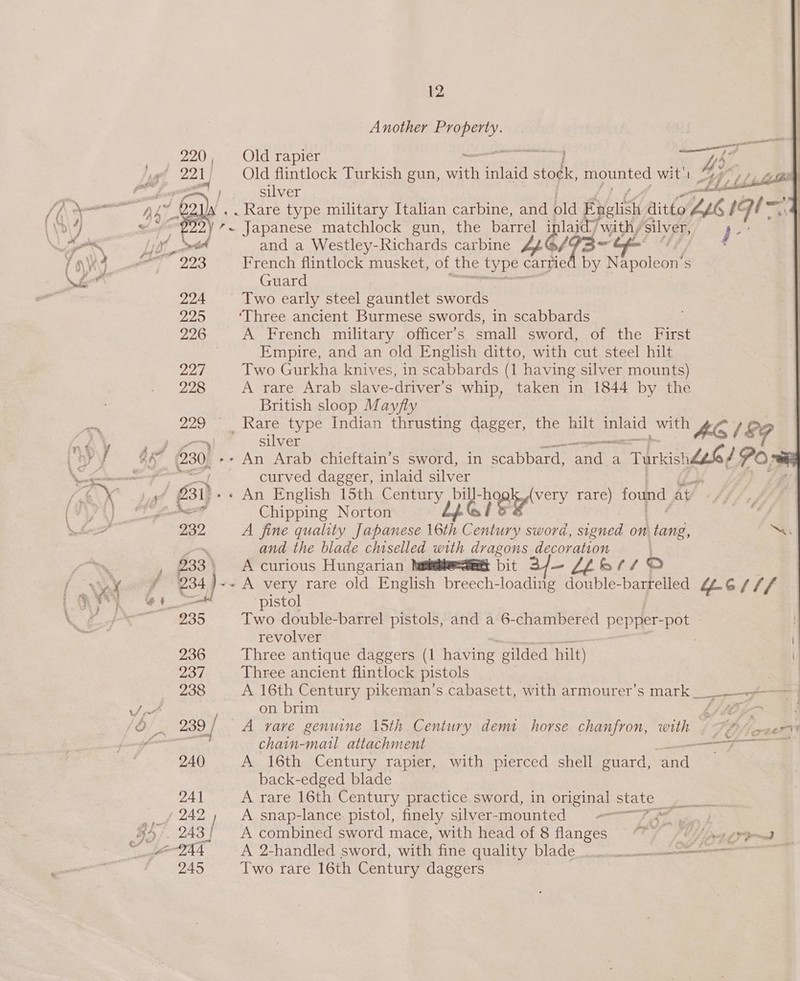 12
Another Property.
220 Old rapier
221 Old flintlock Turkish gun, with inlaid stock, mounted with
silver
221A Rare type military Italian carbine, and old English ditto
222 Japanese matchlock gun, the barrel inlaid with silver,
and a Westley-Richards carbine
223 French flintlock musket, of the type carried by Napoleon's
Guard
224 Two early steel gauntlet swords
225 Three ancient Burmese swords, in scabbards
226 A French military officer's small sword, of the First
Empire, and an old English ditto, with cut steel hilt
227 Two Gurkha knives, in scabbards (1 having silver mounts)
228 A rare Arab slave-driver's whip, taken in 1844 by the
British sloop Mayfly
229 Rare type Indian thrusting dagger, the hilt inlaid with
silver
230 An Arab chieftain's sword, in scabbard, and a Turkish
curved dagger, inlaid silver
231 An English 15th Century bill-hook (very rare) found at
Chipping Norton
232 A fine quality Japanese 16th Century sword, signed on tang,
and the blade chiselled with dragons decoration
233 A curious Hungarian bit
234 A very rare old English breech-loading double-barrelled
pistol
235 Two double-barrel pistols, and a 6-chambered pepper-pot
revolver
236 Three antique daggers (1 having gilded hilt)
237 Three ancient flintlock pistols
238 A 16th Century pikeman's cabasett, with armourer's mark
on brim
239 A rare genuine 15th Century demi horse chanfron, with
chain-mail attachment
240 A 16th Century rapier, with pierced shell guard, and
back-edged blade
241 A rare 16th Century practice sword, in original state
242 A snap-lance pistol, finely silver-mounted
243 A combined sword mace, with head of 8 flanges
244 A 2-handled sword, with fine quality blade
245 Two rare 16th Century daggers